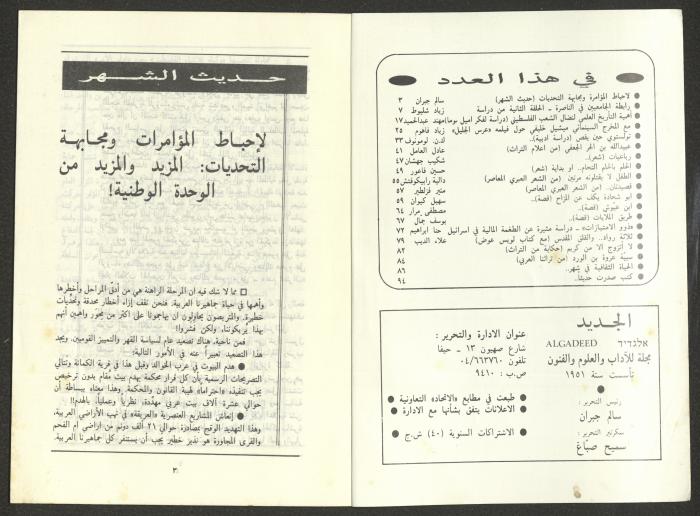 في هذا العدد
● لاحباط المؤامرة ومجابهة التحديات (حديث الشهر) سالم جبران ٣
● رابطة الجامعيين في الناصرة ـ الحلقة الثانية من دراسة زياد شليوط ٧
● أهمية التأريخ العلمي لنضال الشعب الفلسطيني (دراسة لفكر اميل توما) مهند عبدالحميد ١٧
● مع المخرج السينمائي ميشيل خليفي حول فيلمه «عرس الجليل» زياد فاهوم ٢٥
● تولستوي حين يقص (دراسة أدبية).. لدن. لومونوف ٣٣
● عبيدالله بن الحر الجعفي (من أعلام التراث) عادل العامل ٤١
● رباعيات (شعر).. شكيب جهشان ٤٧
● الحلم بالحلم التحام.. او بداية (شعر) حسين فاعور ٤٩
● الطفل لا يقتلونه مرتين (من الشعر العبري المعاصر) دالية رابيكوفتش ٥٥
● قصيدتان.. (من الشعر العبري المعاصر) منير فزلطير ٥٧
● ابو شحادة يكف عن المزاح (قصة).. سهيل كيوان ٥٩
● ابن عيوش (قصة).. مصطفى مرار ٦٤
● طريق الملايات (قصة).. يوسف جمال ٦٧
● «ذوو الامتيازات» ـ دراسة مثيرة عن الطغمة المالية في اسرائيل حنا ابراهيم ٧٢
● ثلاثة رواد.. والقلق المقدس (مع كتاب لويس عوض) علاء الديب ٧٩
● لا أتزوج الا من كريم (حكاية من التراث) ٨٢
● سيبة عروة بن الورد (من تراثنا العربي) ٨٤
● الحياة الثقافية في شهر. ٨٦
● كتب صدرت حديثاً. ٩٤
الجديد
אלגדיד ALGADEED
مجلة للآداب والعلوم والفنون
تأسست سنة ١٩٥١
●
رئيس التحرير :
سالم جبران
سكرتير التحرير :
سميح صباغ
عنوان الادارة والتحرير :
شارع صهيون ١٣ ـ حيفا
تلفون ٠٤/٦٦٣٧٦٠
ص.ب : ٩٤١٠
● طبعت في مطابع «الاتحاد» التعاونية
● الاعلانات يتفق بشأنها مع الادارة
● الاشتراكات السنوية (٤٠) ش.ج
حديث الشهر
لاحباط المؤامرات ومجابهة
التحديات: المزيد والمزيد من
الوحدة الوطنية!
□ مما لا شك فيه ان المرحلة الراهنة هي من أدق المراحل وأخطرها
وأهمها في حياة جماهيرنا العربية. فنحن نقف إزاء أخطار محدقة وتحديات
خطيرة. والمتربصون يحاولون ان يهاجمونا على اكثر من محور واهمين أنهم
بهذا يربكوننا. ولكن فشروا!
فمن ناحية، هناك تصعيد عام لسياسة القهر والتمييز القوميين. ويجد
هذا التصعيد تعبيراً عنه في الأمور التالية:
● هدم البيوت في عرب الخوالد وقبل هذا في قرية الكمانة وتتالي
التصريحات الرسمية بأن كل قرار محكمة بهدم بيت مقام بدون ترخيص
يجب تنفيذه «احتراما» لهيبة القانون والمحكمة. وهذا معناه ببساطة أن
حوالي عشرة. آلاف بيت عربي مهددة، نظرياً وعملياً، بالهدم!!
● إنعاش المشاريع العنصرية «العريقة» في نهب الأراضي العربية.
وهذا التهديد الوقح بمصادرة حوالي ٢١ ألف دونم من اراضي ام الفحم
والقرى المجاورة هو نذير خطير يجب أن يستنفر كل جماهيرنا العربية.
٣